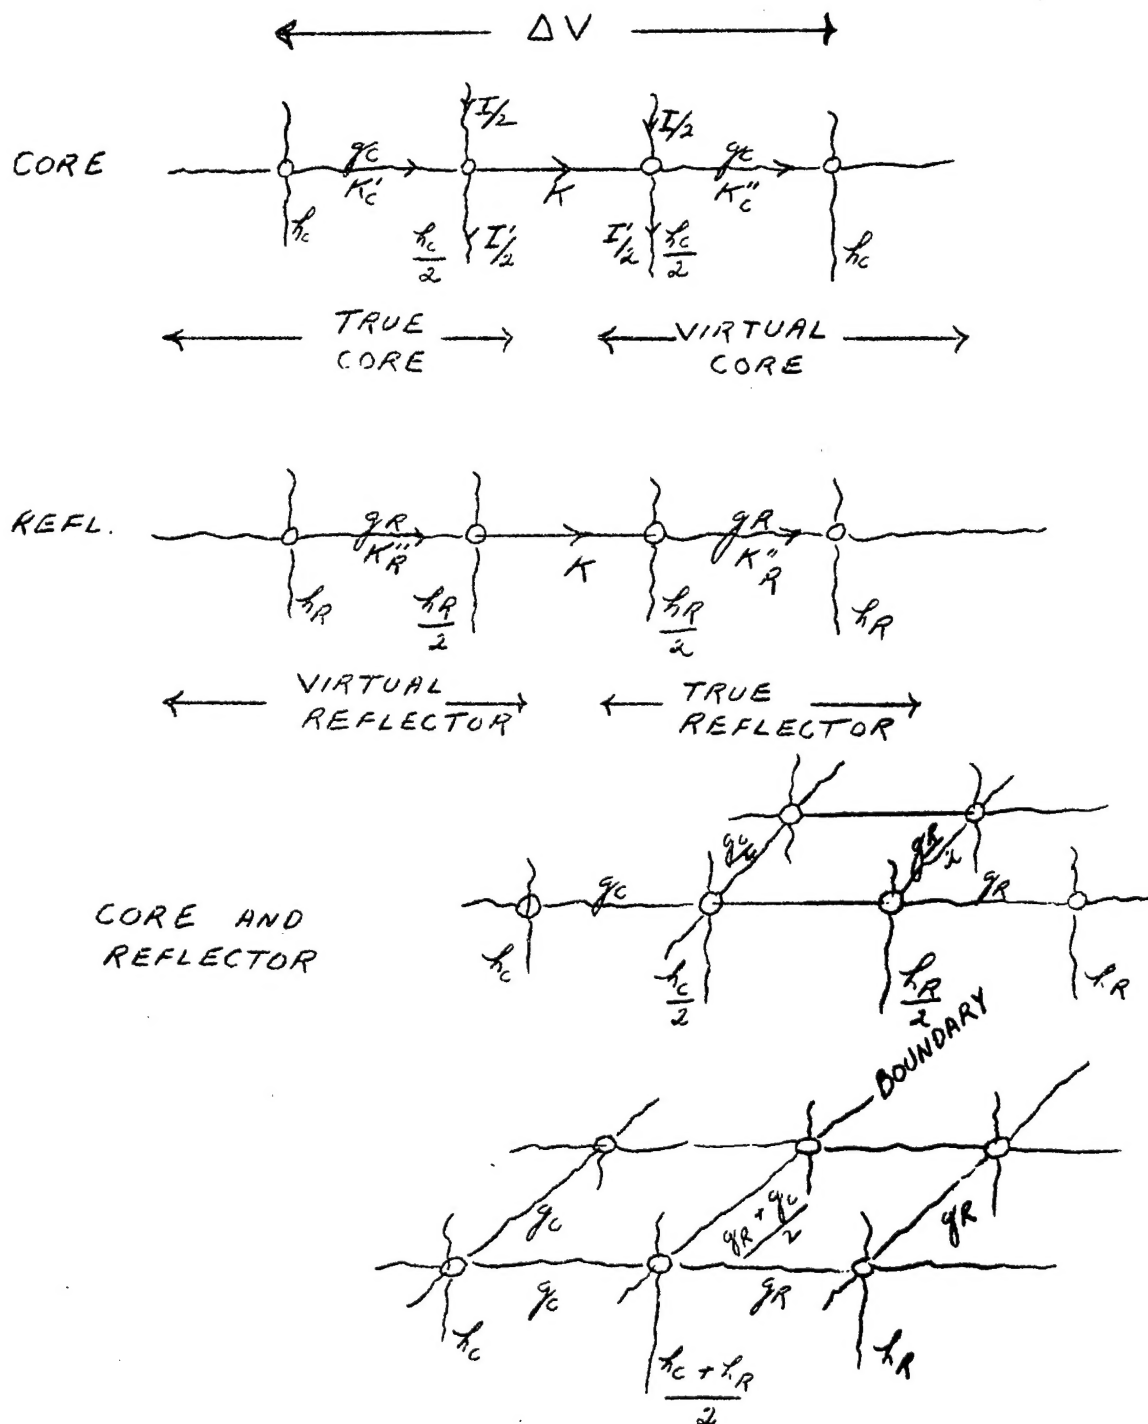 ΔV
I/2
I/2
CORE
gc
K'c
K
gc
K"c
hc
hc/2
I'/2
I'/2
hc/2
hc
TRUE CORE
VIRTUAL CORE
REFL.
gR
K'''R
K
gR
K"R
hR
hR/2
hR/2
hR
VIRTUAL REFLECTOR
TRUE REFLECTOR
gR/2
CORE AND
REFLECTOR
gc
gR
hc
hc/2
hR/2
hR
BOUNDARY
gc
gR + gc/2
gR
gc
gR
hc
hc + hR/2
hR